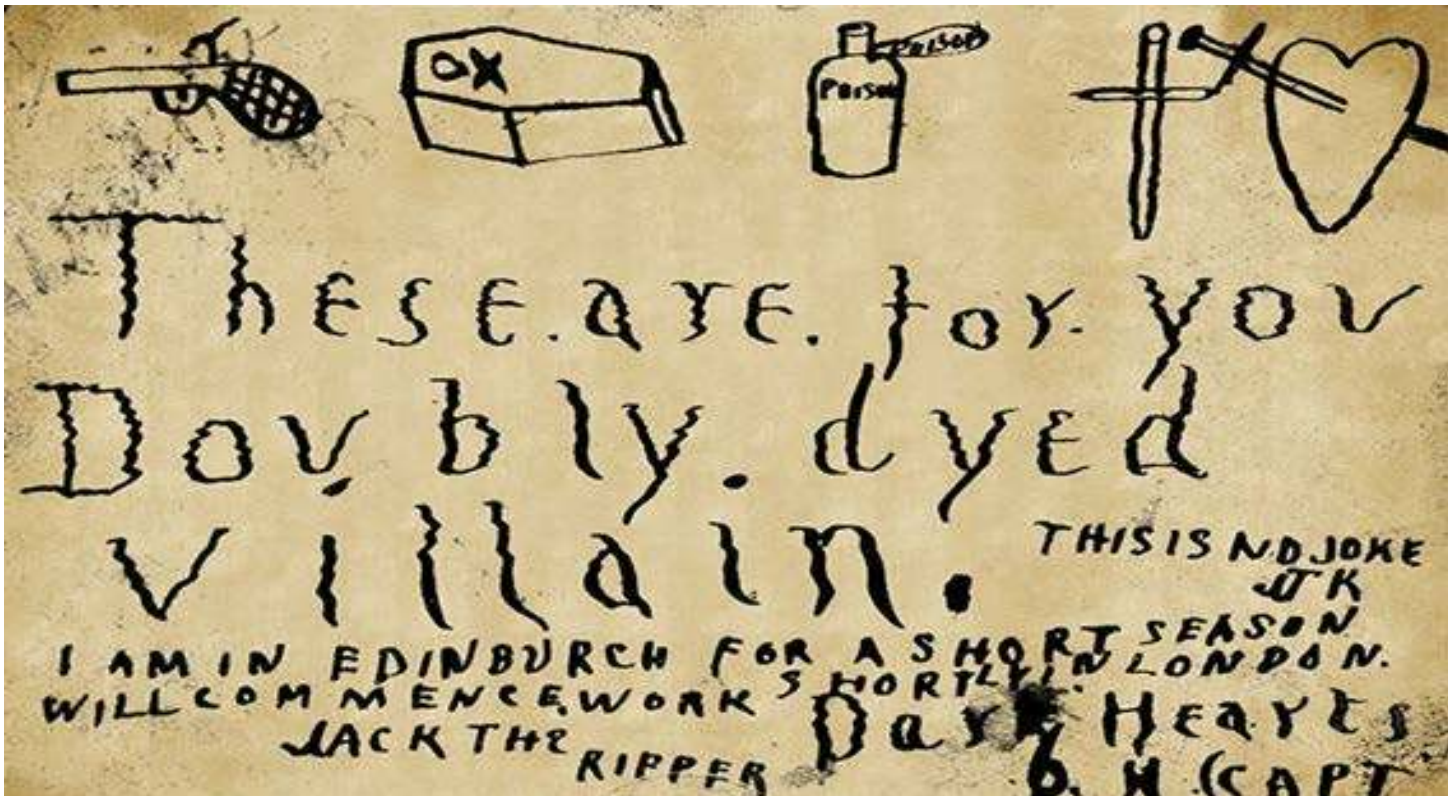 OX
POISON
POISON
ThESE.are.for.you
Dou.bly.dyed
villain.
THIS IS NO JOKE
JTK
I AM IN EDINBURCH FOR A SHORT SEASON
WILL COMMENCE.WORK SHORTLY.IN LONDON.
JACK THE
RIPPER
Dark Hearts
H (CAPT